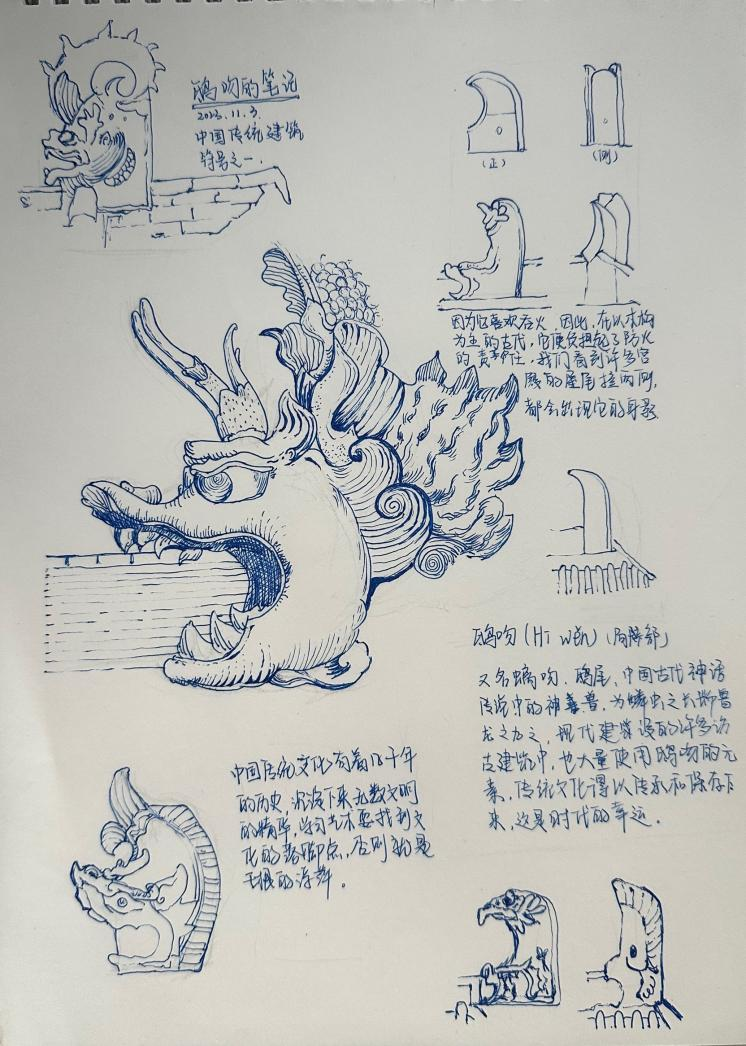 鸱吻的笔记
2023.11.3.
中国传统建筑
符号之一.
(正)
(侧)
因为它喜欢吞火.因此,在以木构
为主的古代,它便负担起了防火
的责任,我们看到许多宫
殿的屋尾挂两侧,
都会出现它的身影
鸱吻(HI Wěn)(局部)
又名螭吻.鸱尾,中国古代神话
传说中的神兽,为鳞虫之长
龙之九之,现代建设的许多访
古建筑中,也大量使用鸱吻的元
素,传统文化得以传承和保存下
来,这是时代的幸运.
中国传统文化有着几千年
的历史沉淀下来无数文明
的精华,学习艺术要找到文
化的落脚点,否则就是
无根的浮萍。